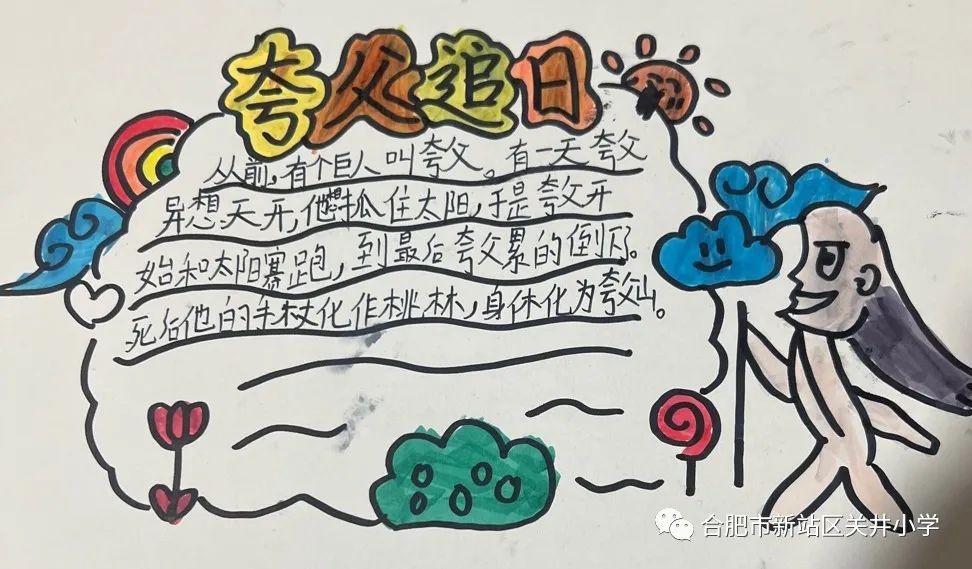 夸父追日
从前，有个巨人叫夸父。有一天夸父
异想天开，他想抓住太阳，于是夸父开
始和太阳赛跑，到最后夸父累的倒下了。
死后他的手杖化作桃林，身体化为夸父山。
合肥市新站区关井小学